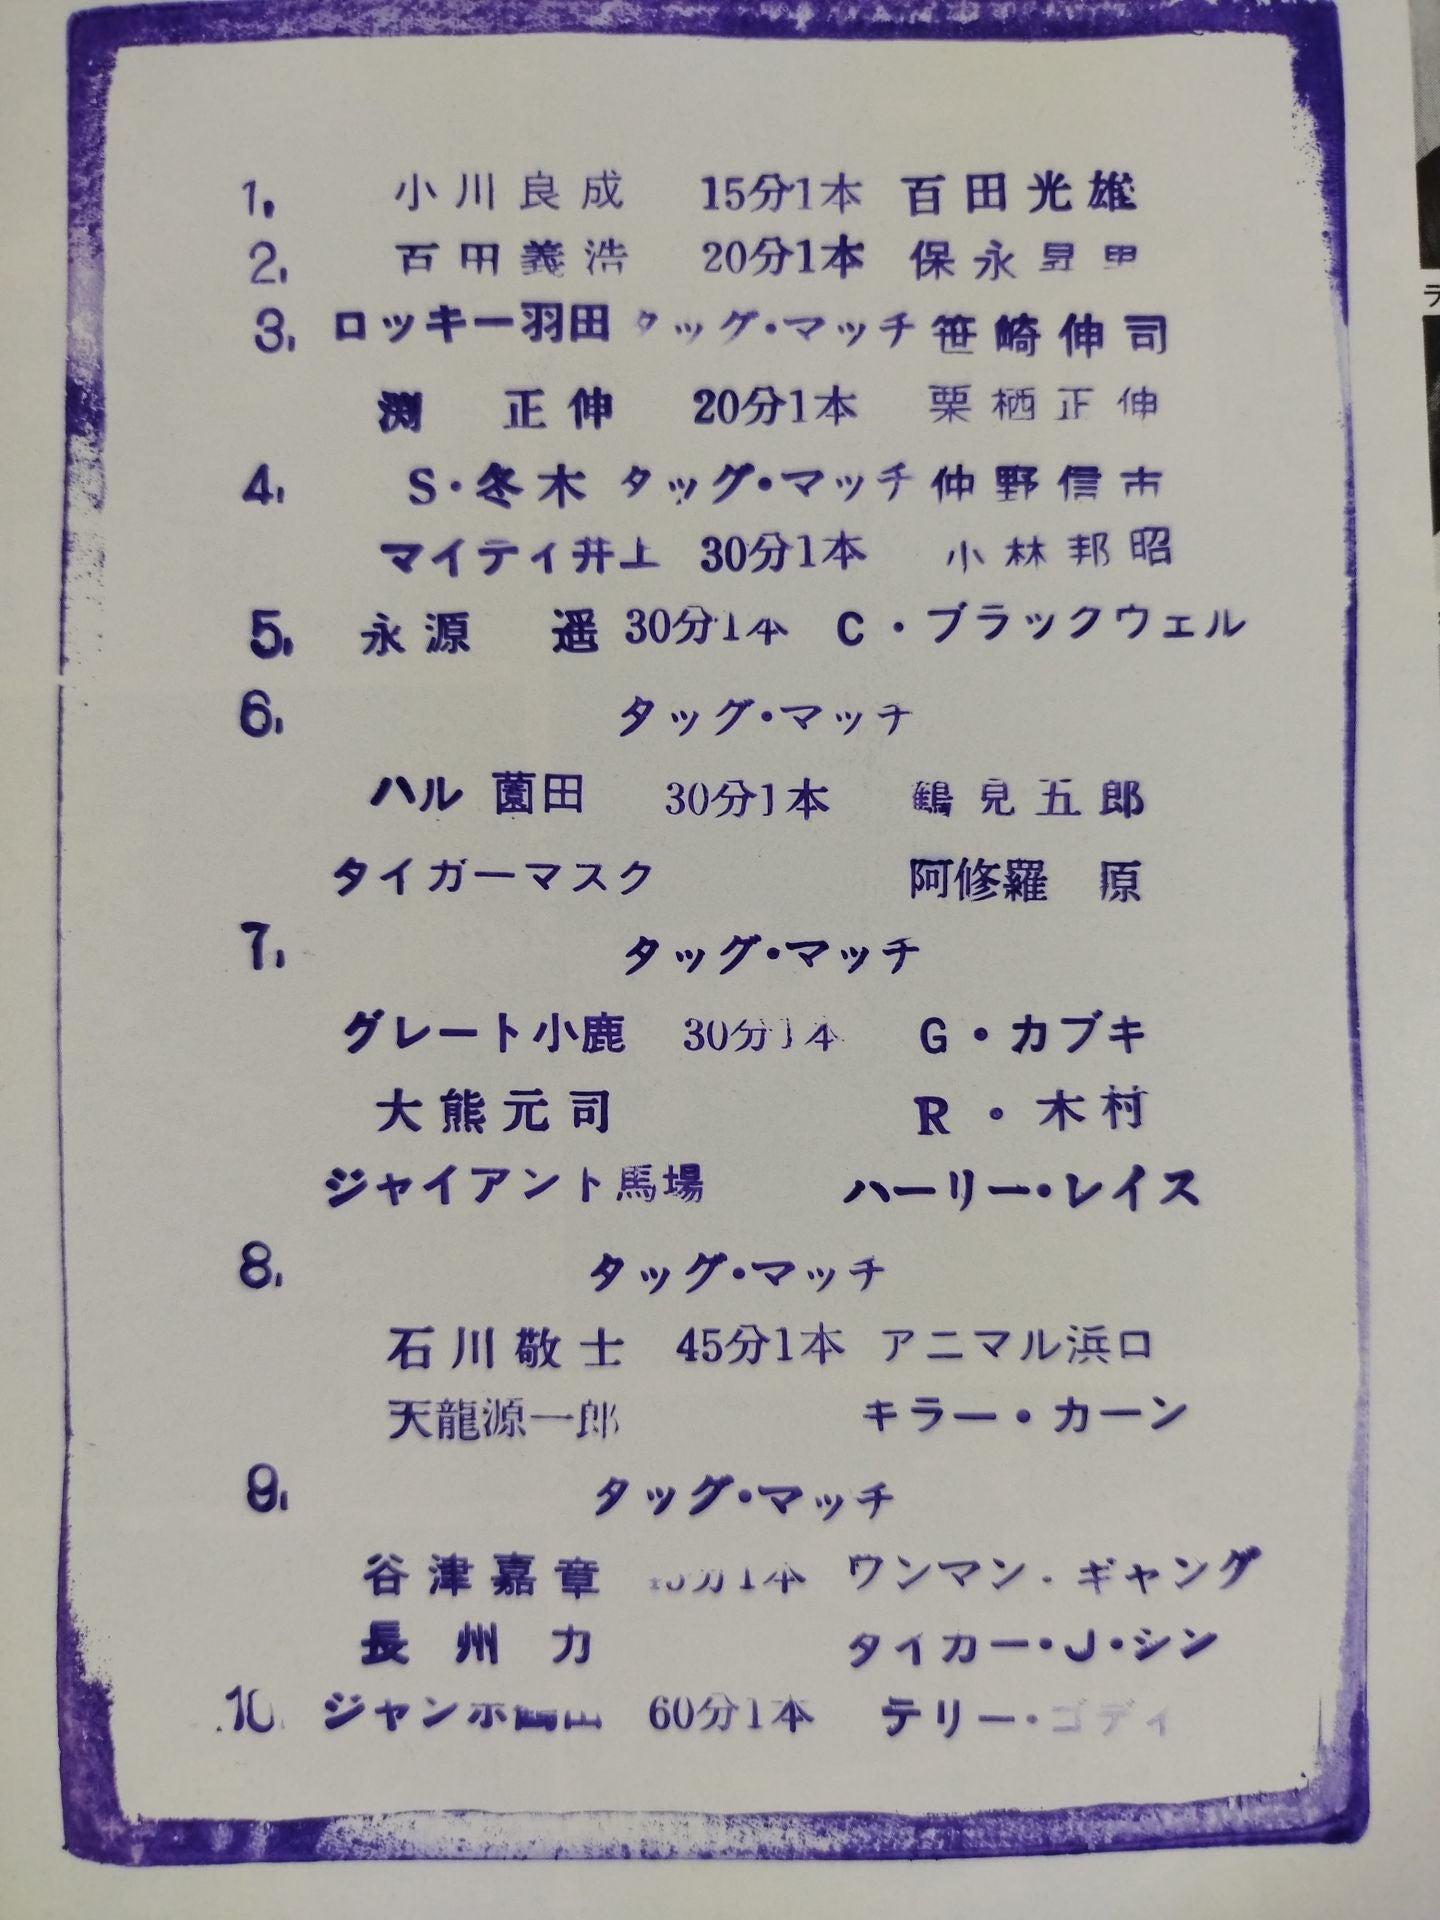 1. 小川良成 15分1本 百田光雄
2. 百田義浩 20分1本 保永昇男
3. ロッキー羽田 タッグ・マッチ 笹崎伸司
渕 正伸 20分1本 栗栖正伸
4. S・冬木 タッグ・マッチ 仲野信市
マイティ井上 30分1本 小林邦昭
5. 永源 遥 30分1本 C・ブラックウェル
6. タッグ・マッチ
ハル 薗田 30分1本 鶴見五郎
タイガーマスク 阿修羅 原
7. タッグ・マッチ
グレート小鹿 30分1本 G・カブキ
大熊元司 R・木村
ジャイアント馬場 ハーリー・レイス
8. タッグ・マッチ
石川敬士 45分1本 アニマル浜口
天龍源一郎 キラー・カーン
9. タッグ・マッチ
谷津嘉章 45分1本 ワンマン・ギャング
長州力 タイガー・J・シン
10. ジャンボ鶴田 60分1本 テリー・ゴディ